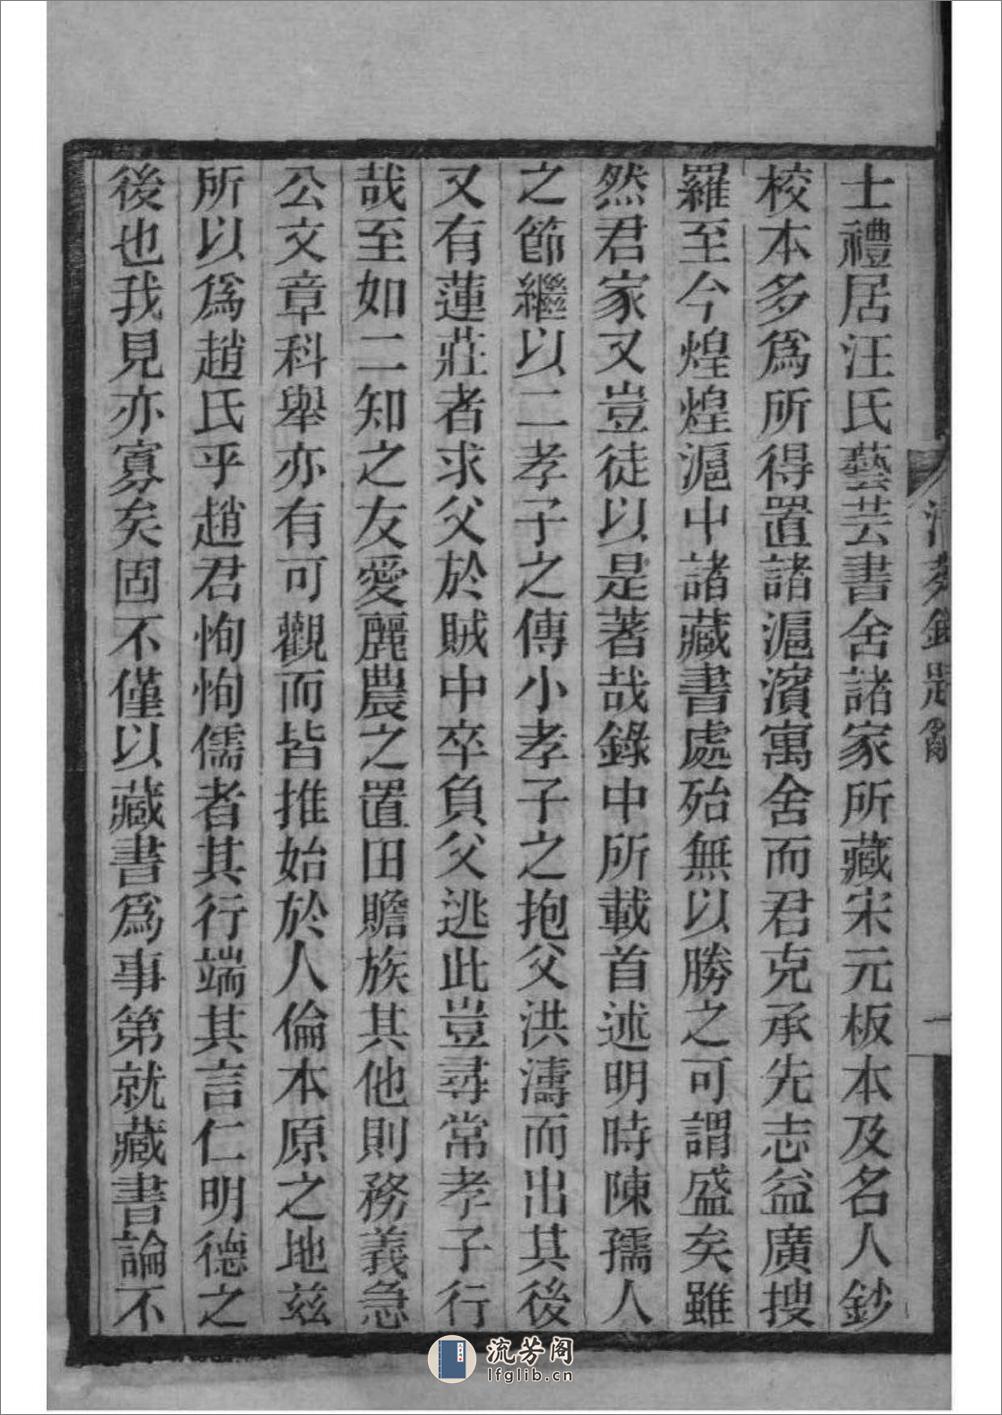 士禮居汪氏藝芸書舍諸家所藏宋元板本及名人鈔
校本多爲所得置諸滬濱寓舍而君克承先志益廣搜
羅至今煌煌滬中諸藏書處殆無以勝之可謂盛矣雖
然君家又豈徒以是著哉錄中所載首述明時陳孺人
之節繼以二孝子之傳小孝子之抱父洪濤而出其後
又有蓮莊者求父於賊中卒負父逃此豈尋常孝子行
哉至如二知之友愛麗農之置田贍族其他則務義急
公文章科舉亦有可觀而皆推始於人倫本原之地茲
所以爲趙氏乎趙君恂恂儒者其行端其言仁明德之
後也我見亦寡矣固不僅以藏書爲事第就藏書論不
流芳阁
lfglib.cn